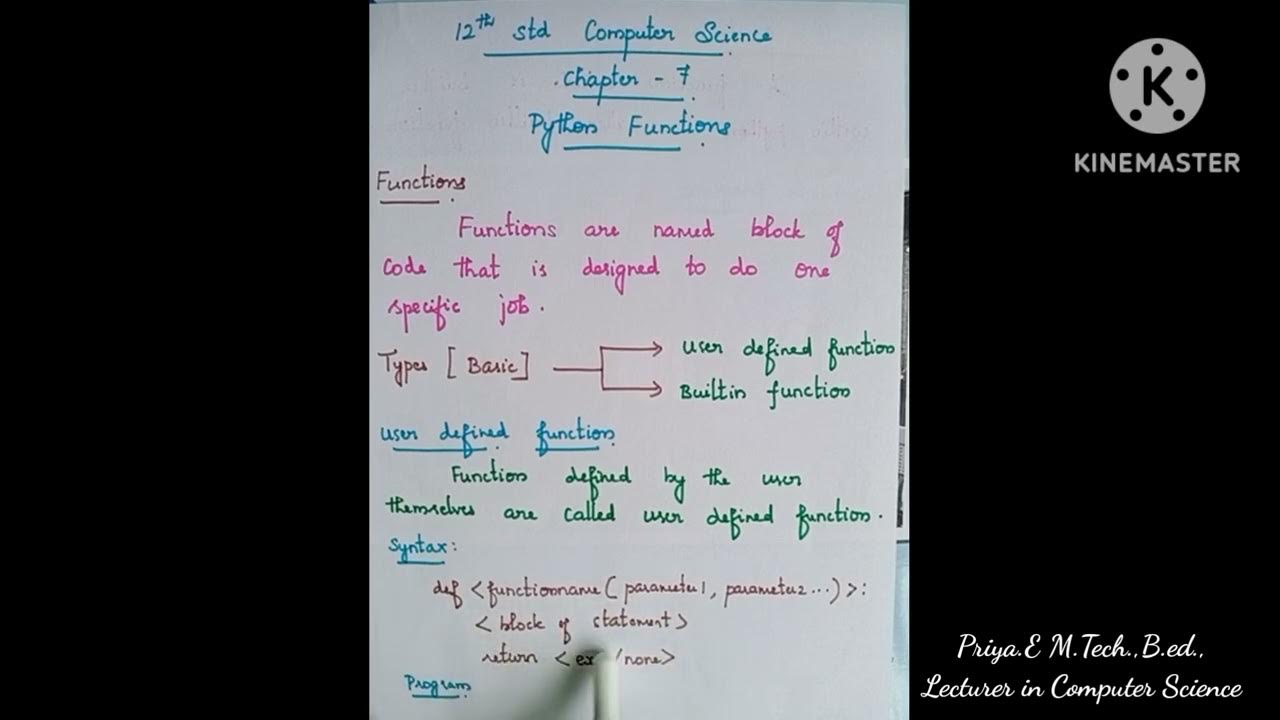 12th std Computer Science
Chapter - 7
Python Functions
Functions
Functions are named block of
code that is designed to do one
specific job.
Types [Basic]
User defined function
Builtin function
User defined function
Function defined by the user
themselves are called user defined function.
Syntax:
def <functionname(parameter1, parameter2...)>:
<block of statement>
return < /none>
Program
K
KINEMASTER
Priya.E M.Tech.,B.ed.,
Lecturer in Computer Science